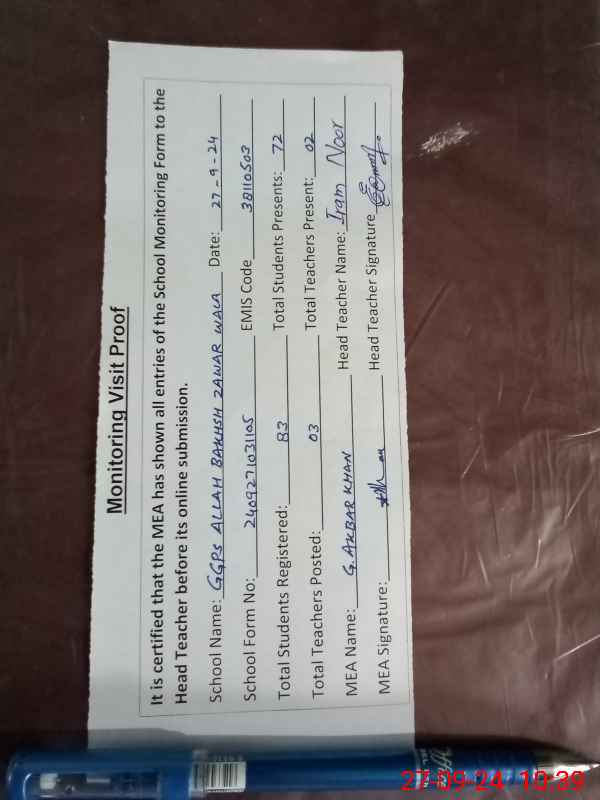 Monitoring Visit Proof
It is certified that the MEA has shown all entries of the School Monitoring Form to the
Head Teacher before its online submission.
School Name: GGPS ALLAH BAKHSH ZAWAR WALA Date: 27-9-24
School Form No: 2409271031105 EMIS Code 38110503
Total Students Registered: 83 Total Students Presents: 72
Total Teachers Posted: 03 Total Teachers Present: 02
MEA Name: G. AKBAR KHAN Head Teacher Name: Iram Noor
MEA Signature: Head Teacher Signature
27-09-24 10:39